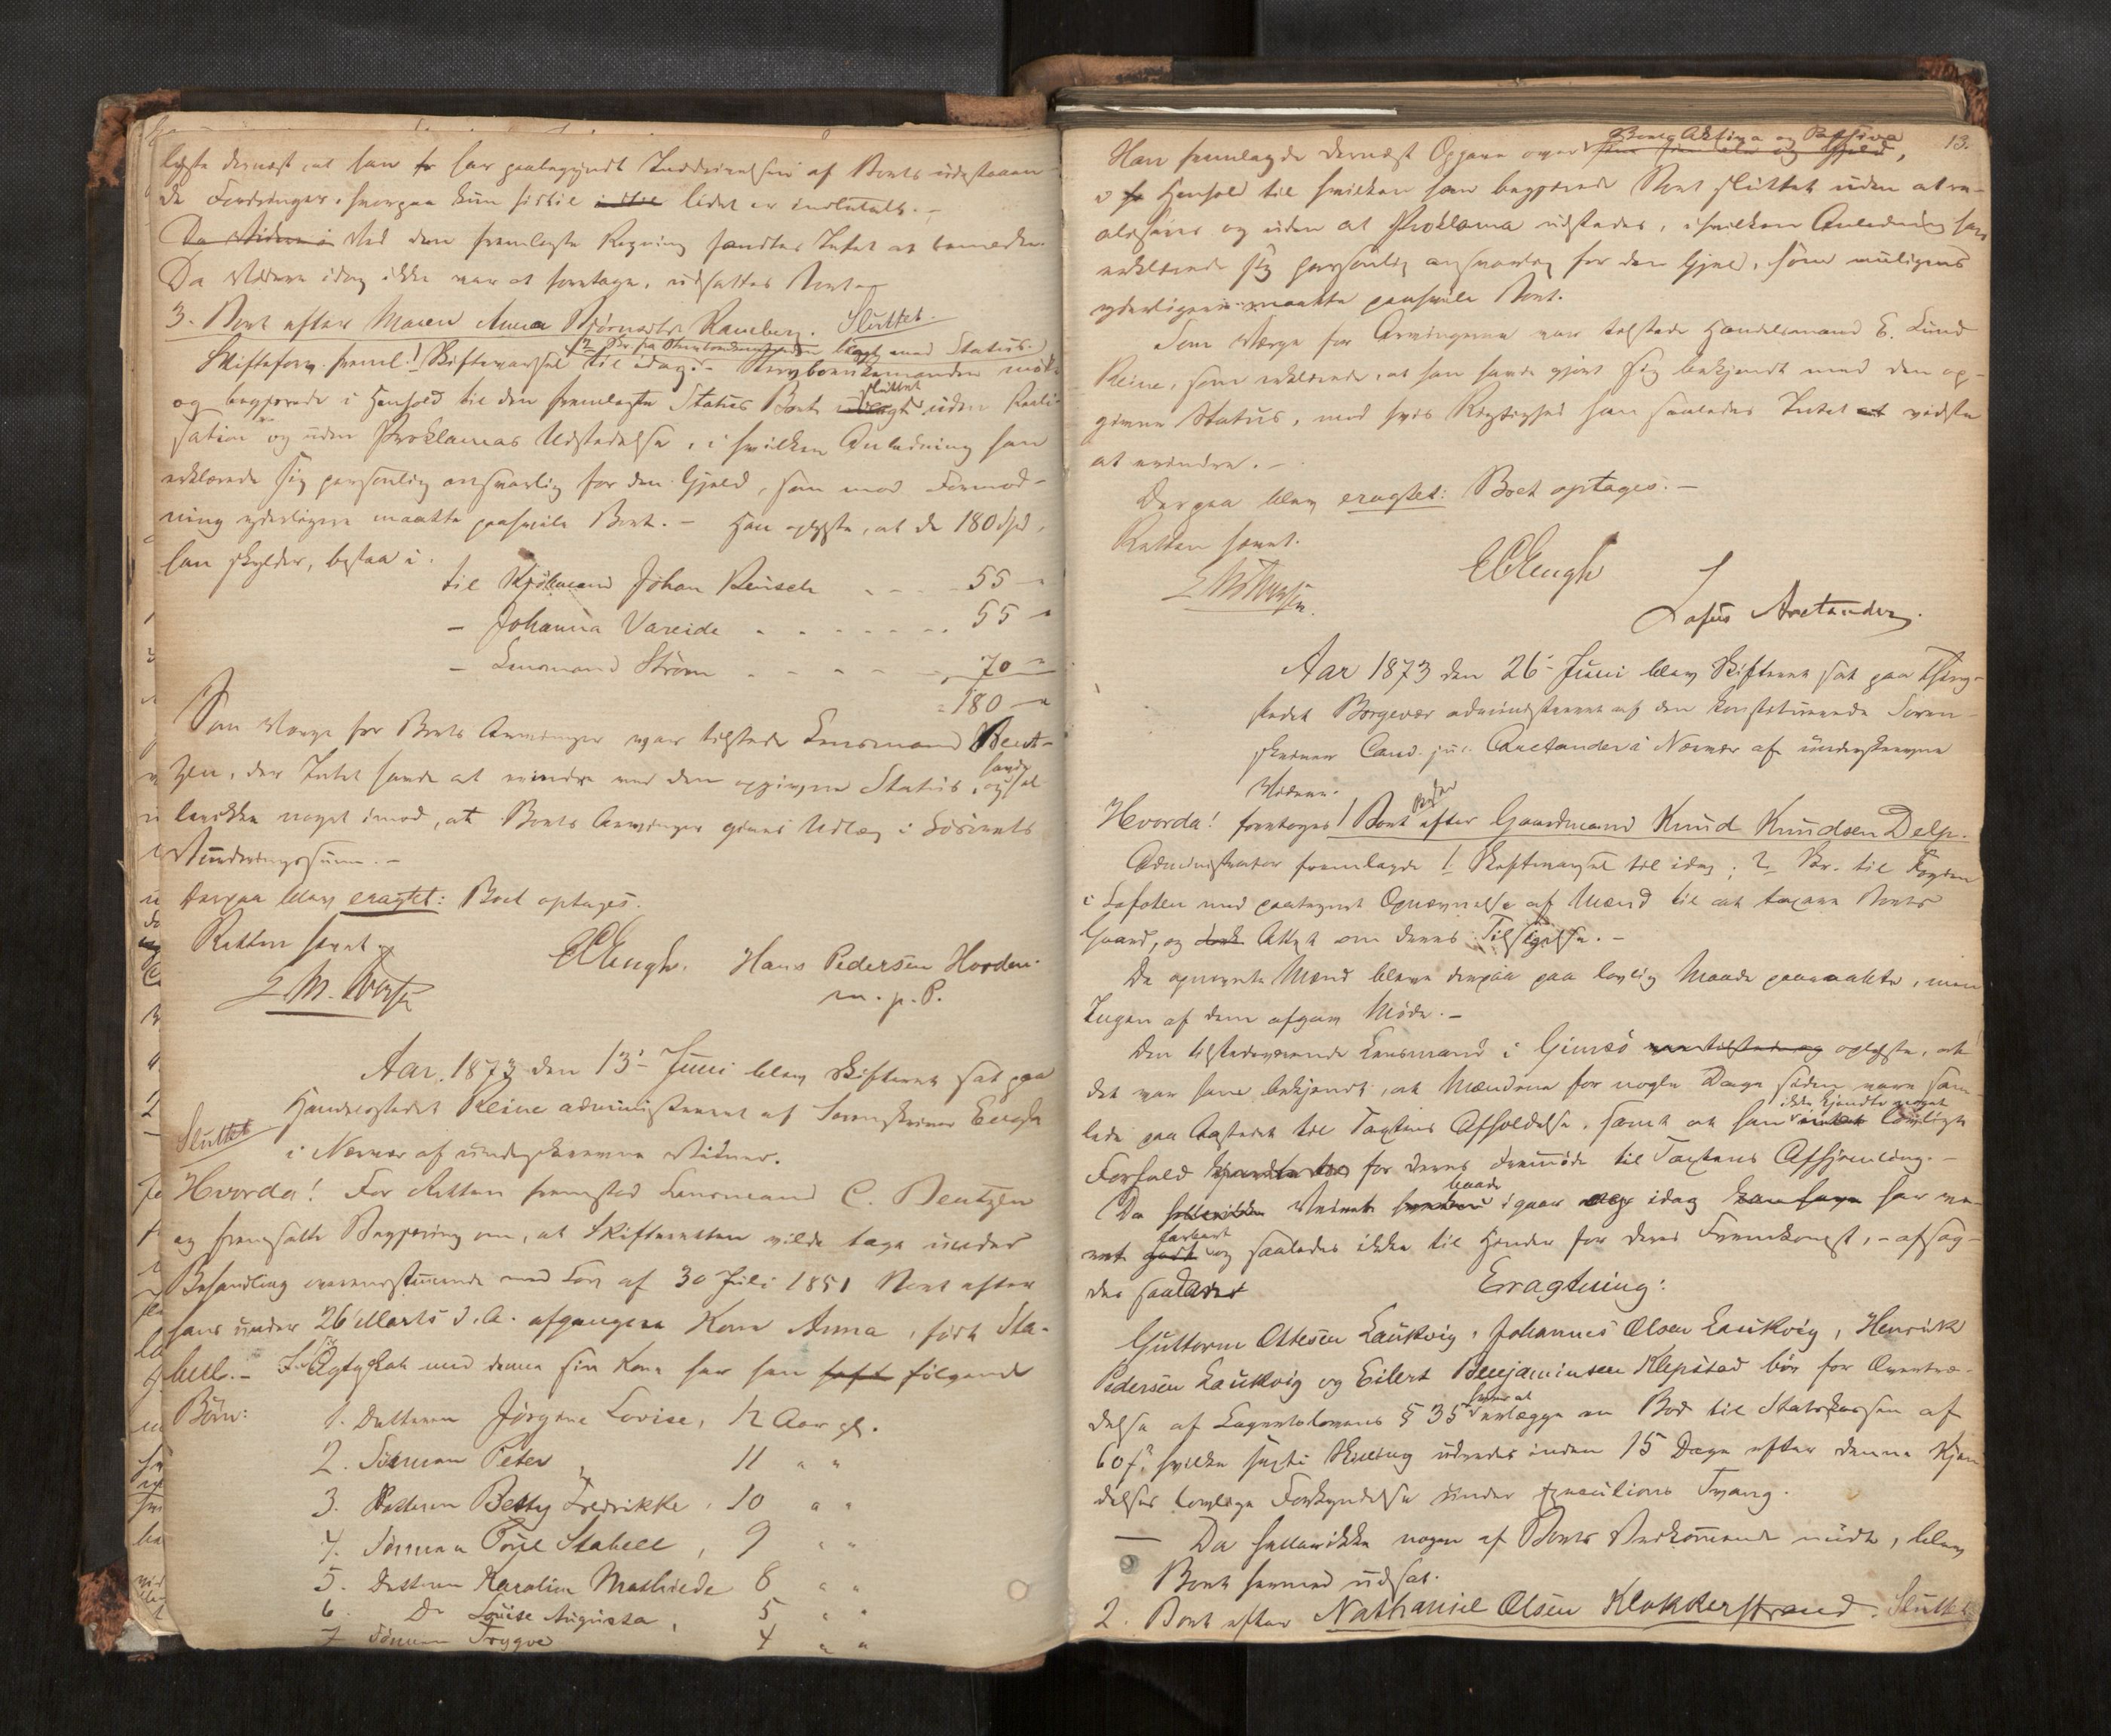 lyste dernæst, at han har paabegyndt Inddrivelsen af Boets udestaaen-
de Fordringer, hvorpaa kun hidtil lidet er indbetalt. -
Ved den fremlagte Regning fandtes Intet at bemærke.
Da Videre idag ikke var at foretage, udsattes Boet.
3. Boet efter Maren Anna Bjørnsdtr Ramberg. Sluttet.
Skifteforv. freml. 1 Skiftevarsel til idag. 2 Br. fra Sterbboenkemanden med Status. Stervboenkemanden mødte
og begjærede i Henhold til den fremlagte Status Boet sluttet uden Reali-
sation og uden Proklamas Udstedelse, i hvilken Anledning han
erklærede sig personlig ansvarlig for den Gjæld, som mod Formod-
ning yderligere maatte paahvile Boet. - Han oplyste, at de 180 Spd,
han skylder, bestaa i:
til Kjøbmand Johan Reusch 55 -
- Johanna Vareide 55 -
- Lensmand Strøm 70 -
= 180 -
Som Værge for Boets Arvinger var tilstede Lensmand Bent-
zen, der Intet havde at erindre ved den opgivne Status, og havde hel-
ler ikke noget imod, at Boets Arvinger gives Udlæg i Løsørets
Vurderingssum. -
Derpaa blev eragtet: Boet optages.
Retten hævet.
EC Engh. Hans Pedersen Horden
m. p. P.
Aar 1873 den 13de Juni blev Skifteret sat paa
Handelsstedet Reine administreret af Sorenskriver Engh
i Nærvær af undertegnede Vidner.
Sluttet
Hvorda! For Retten fremstod Lensmand C. Bentzen
og fremsatte Begjæring om, at Skifteretten vilde tage under
Behandling overensstemmende med Lov af 30 Juli 1851 Boet efter
hans under 26 Marts d. A. afgangne Kone Anna, født Sta-
bell. - I sit Ægteskab med denne sin Kone har han følgende
Børn: 1. Datteren Jørgine Lovise, 12 Aar gl.
2. Sønnen Peter, 11 " "
3. Datteren Betty Fredrikke, 10 " "
4. Sønnen Stabell, 9 " "
5. Datteren Karoline Mathilde 8 " "
6. Do Louise Augusta, 5 " "
7. Sønnen Trygve 4 " "
13.
Han fremlagde dernæst Opgave over Boets Aktiva og Passiva,
i Henhold til hvilken han begjærede Boet sluttet uden at re-
aliseres og uden at Proklama udstedes, i hvilken Anledning han
erklærede sig personlig ansvarlig for den Gjæld, som muligens
yderligere maatte paahvile Boet.
Som Værge for Arvingerne var tilstede Handelsmand E. Lund
Reine, som erklærede, at han havde gjort sig bekjendt med den op-
givne Status, mod hvis Rigtighed han saaledes Intet vidste
at erindre. -
Derpaa blev eragtet: Boet optages. -
Retten hævet.
EC Engh
Arctander.
Aar 1873 den 26de Juni blev Skifteret sat paa Thing-
stedet Borgevær administreret af den konstituerede Soren-
skriver Cand. jur. Arctander i Nærvær af underskrevne
Vidner.
Hvorda! foretoges 1 Boet efter Gaardmand Knud Knudsen Delp.
Administrator fremlagde 1. Skiftevarsel til idag; 2. Br. til Fogden
i Lofoten med paategnet Opnævnelse af Mænd til at taxere Boets
Gaard, og Attest om deres Tilsigelse. -
De opnævnte Mænd bleve derpaa paa lovlig Maade paaraabte, men
Ingen af dem afgav Møde. -
Den tilstedeværende Lensmand i Gimsø oplyste, at
det var ham bekjendt, at Mændene for nogle Dage siden vare sam-
lede paa Aastedet til Taxtens Afholdelse, samt at han ikke kjendte noget lovligt
Forfald for deres Fremmøde til Taxtens Afhjemling. -
Da Veiret baade igaar og idag har væ-
ret farbart og saaledes ikke til Hinder for deres Fremkomst, - afsag-
des saadan
Eragtning:
Guttorm Ottesen Laukvig, Johannes Olsen Laukvig, Henrik
Pedersen Laukvig og Eilert Benjaminsen Klepstad bør for Overtræ-
delse af § 35 hver at erlægge en Bod til Statskassen af
60 s, hvilke sexti Skilling udredes inden 15 Dage efter denne Kjen-
delses lovlige Forkyndelse under Executions Tvang.
- Da heller ikke nogen af Boets Vedkommende mødte, blev
Boet hermed udsat.
2. Boet efter Nathaniel Olsen Klokkerstrand. Sluttet